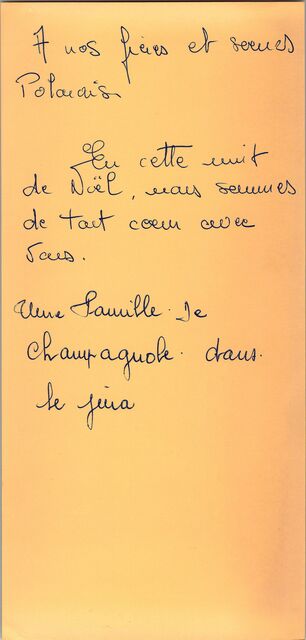 A nos frères et soeurs
Polonais.
En cette nuit
de Noël, nous sommes
de tout coeur avec
Vous.
Une Famille. de
Champagnole. dans.
le jura